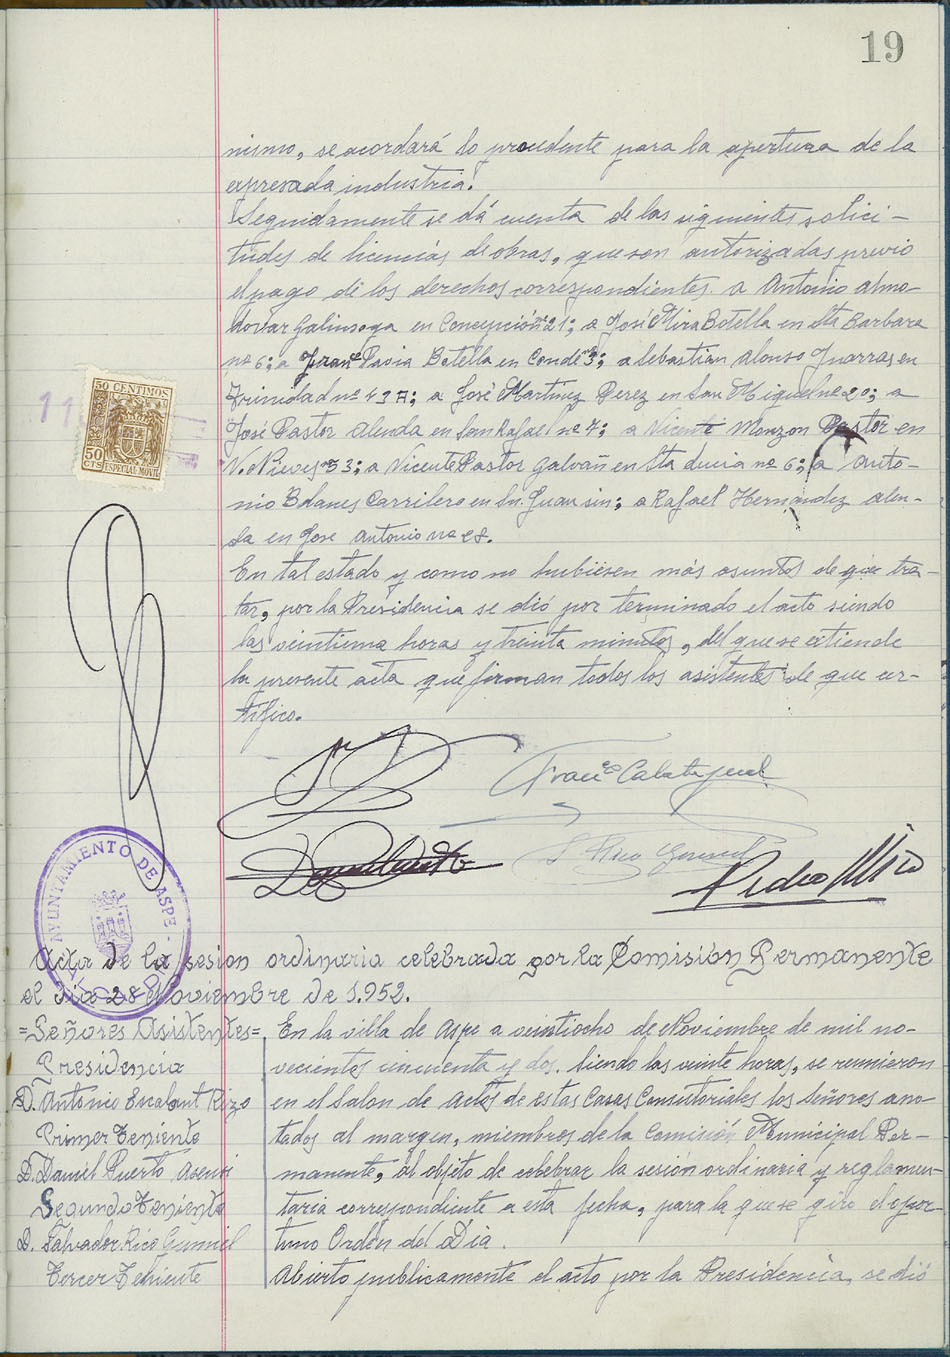 19
nismo, se acordará lo procedente para la apertura de la
expresada industria.
Seguidamente se dá cuenta de las siguientes solici-
tudes de licencias de obras, que son autorizadas previo
el pago de los derechos correspondientes. a Antonio Almo-
dovar Galinsoga en Concepción nº 21; a José Mira Botella en Sta Barbara
nº 6; a Franco Pavia Botella en Conde nº 3; a Sebastian Alonso Juarras en
Trinidad nº 42 A; a José Martínez Perez en San Miguel nº 20; a
José Pastor Alenda en San Rafael nº 7; a Vicente Monzon Pastor en
N. Nieves nº 33; a Vicente Pastor Galvañ en Sta Lucia nº 6; a Anto-
nio Bolanes Carrilero en Sn. Juan sin; a Rafael Hernandez Alen-
da en Jose Antonio nº 28.
En tal estado y como no hubiesen más asuntos de que tra-
tar, por la Presidencia se dió por terminado el acto siendo
las veintiuna horas y treinta minutos, del que se extiende
la presente acta que firman todos los asistentes de que cer-
tifico.
50 CENTIMOS
50 CTS
ESPECIAL MOVIL
11
Franco Calatayud
S Rico Gumiel
Pedro Mico
AYUNTAMIENTO DE ASPE
Acta de la sesion ordinaria celebrada por la Comisión Permanente
el dia 28 Noviembre de 1.952.
=Señores Asistentes=
Presidencia
D. Antonio Escalant Rizo
Primer Teniente
D. Daniel Puerto Asensi
Segundo Teniente
D. Salvador Rico Gumiel
Tercer Teniente
En la villa de Aspe a veintiocho de Noviembre de mil no-
vecientos cincuenta y dos. Siendo las veinte horas, se reunieron
en el Salon de actos de estas Casas Consistoriales los Señores ano-
tados al margen, miembros de la Comisión Municipal Per-
manente, al objeto de celebrar la sesión ordinaria y reglamen-
taria correspondiente a esta fecha, para la que se giro el opor-
tuno Orden del Dia.
Abierto publicamente el acto por la Presidencia, se dió